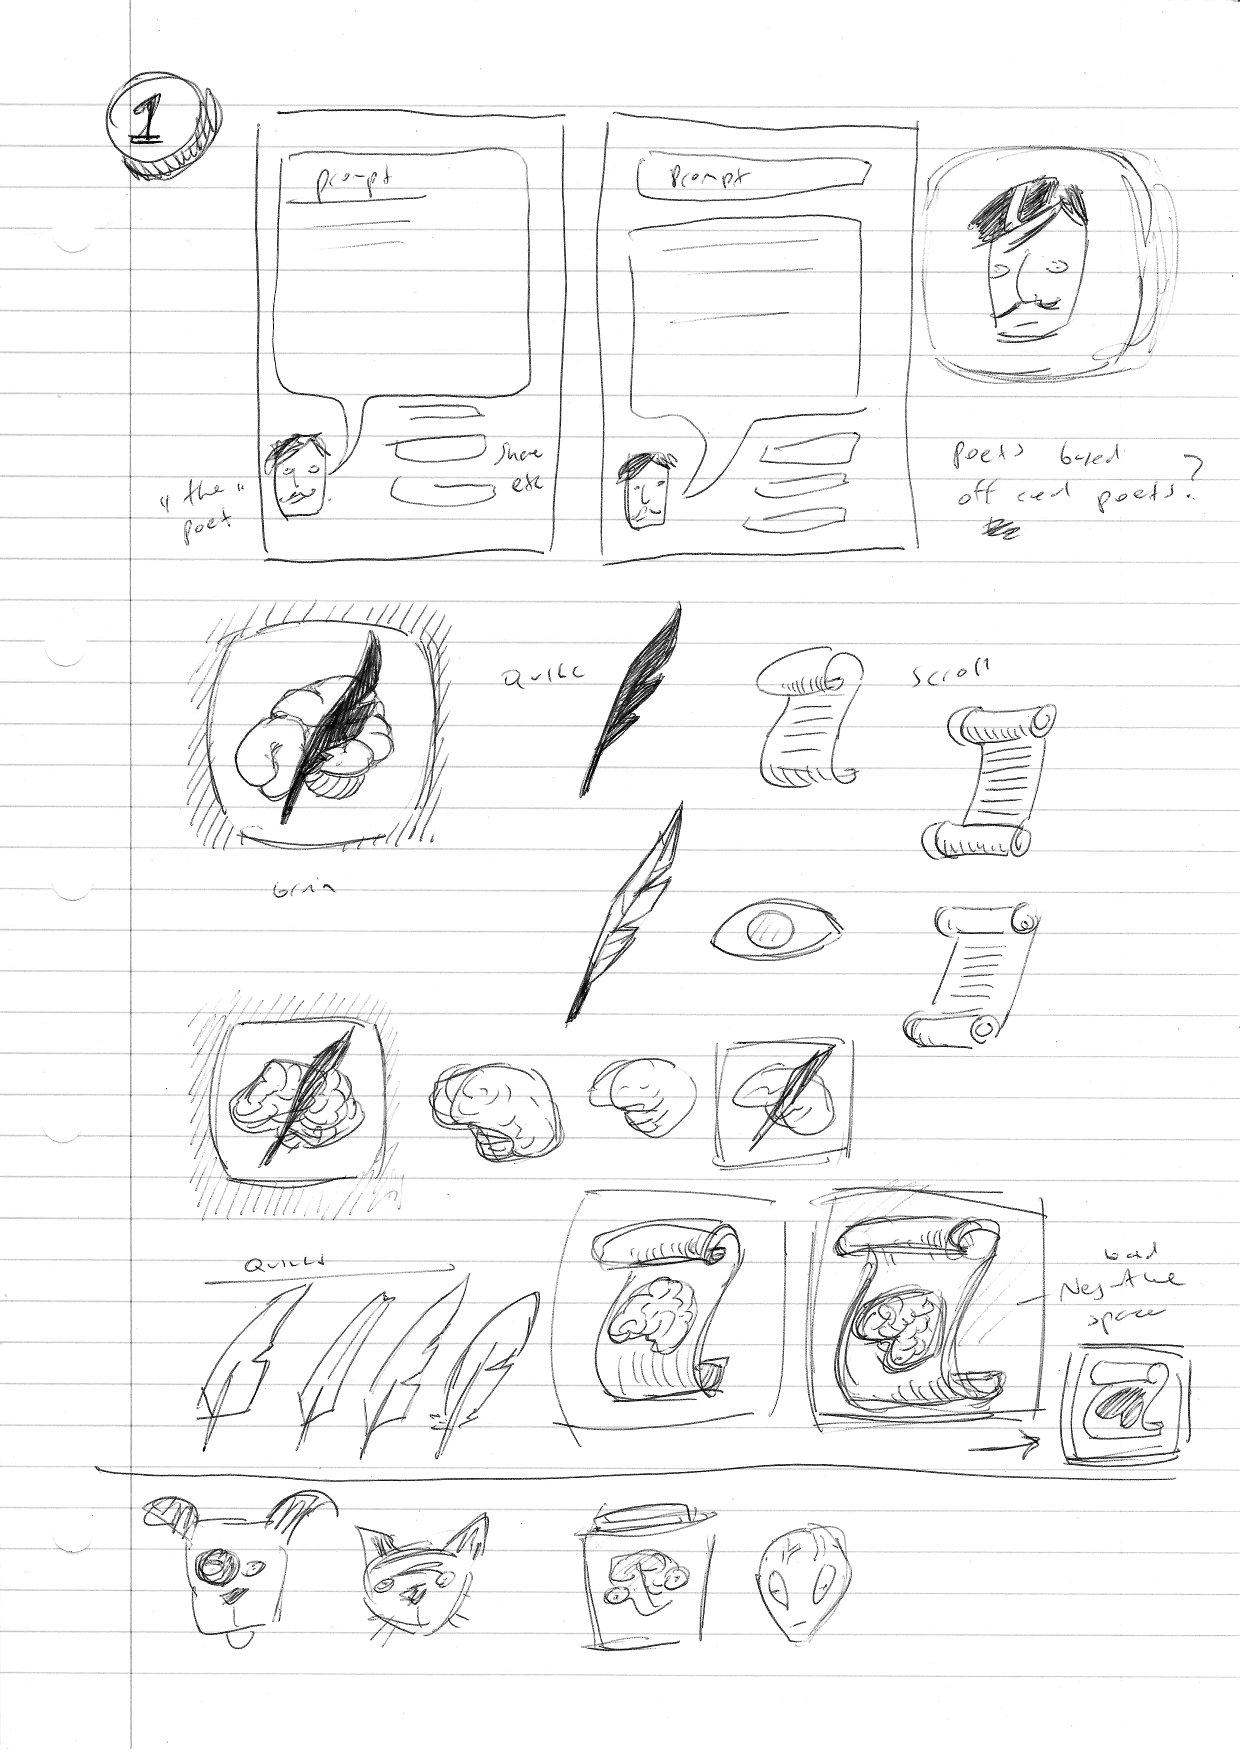 1
prompt
prompt
share
etc
"the"
poet
Poets based
off real poets?
Quill
Scroll
brain
Quills
bad
Negative
space